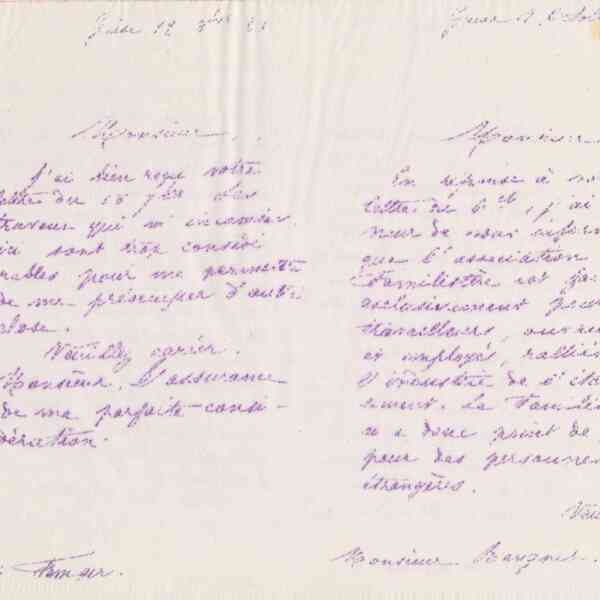 Monsieur,
J'ai bien reçu votre
lettre du 15 7bre. Les
travaux qui m'incombent
ici sont trop considé
rables pour me permettre
de me préoccuper d'autre
chose.
Veuillez agréer,
Monsieur, l'assurance
de ma parfaite consi-
dération.
Monsieur
En réponse à vo
lettre du 6 ct, j'ai
neur de vous inform
que l'association
Familistère est
exclusivement pour
travailleurs, ouvri
et employés, ralliés
l'industrie de l'éta
sement. Le Familis
n'a donc point de
pour des personnes
étrangères.
Veui
Monsieur